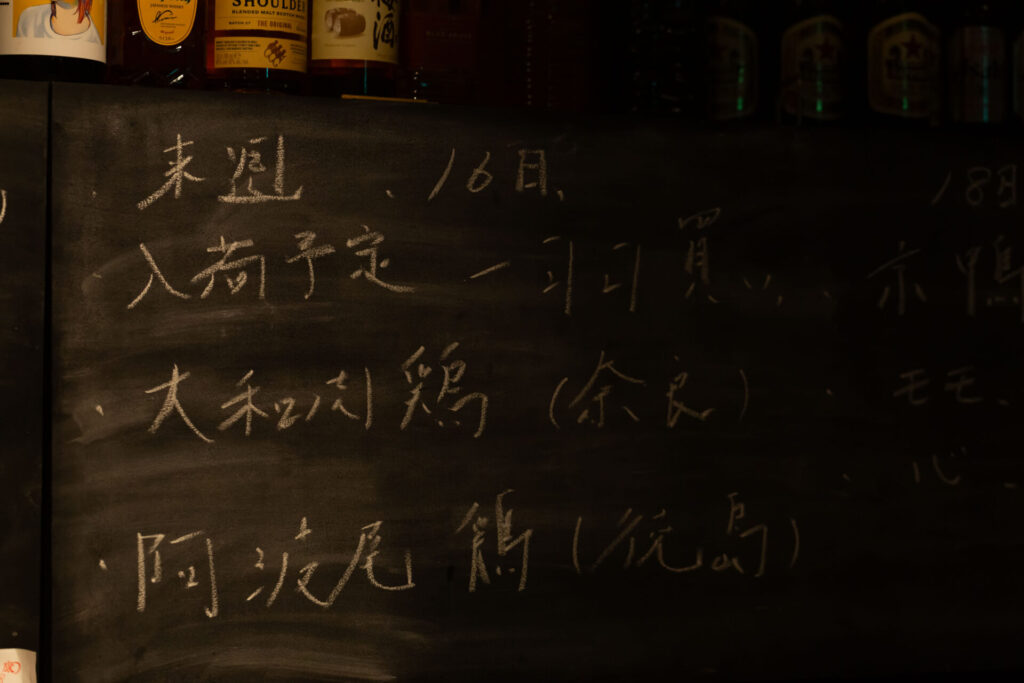 SHOULDER
BLENDED MALT SCOTCH WHISKY
THE ORIGINAL
酒
来週、16日、
入荷予定 一羽買い、
・大和肉鶏(奈良)
・阿波尾鶏(徳島)
18日
鴨
・モモ、
・心、